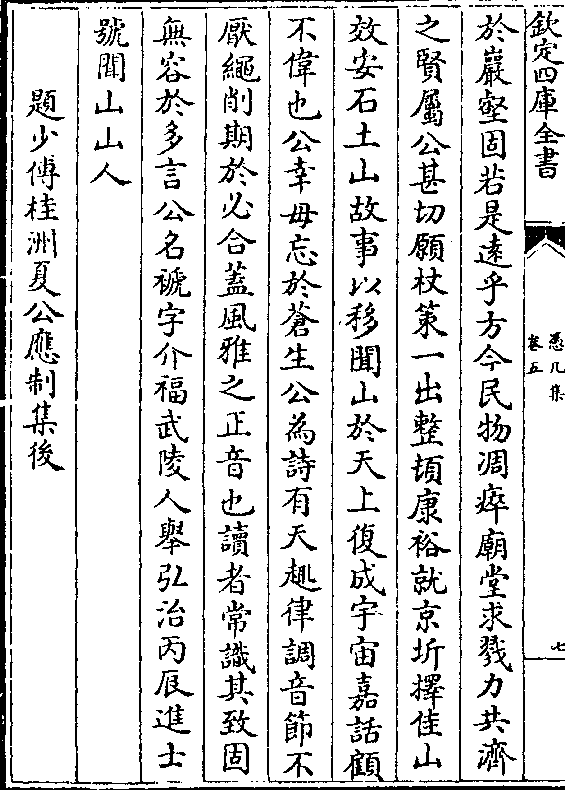 欽定四庫全書
慿几集
卷五
七
於巖壑固若是遠乎方今民物凋瘁廟堂求戮力共濟
之賢屬公甚切願杖策一出整頓康裕就京圻擇佳山
效安石土山故事以移聞山於天上復成宇宙嘉話顧
不偉也公幸毋忘於蒼生公為詩有天趣律調音節不
厭繩削期於必合蓋風雅之正音也讀者常識其致固
無容於多言公名褫字介福武陵人舉弘治丙辰進士
號聞山山人
題少傅桂洲夏公應制集後